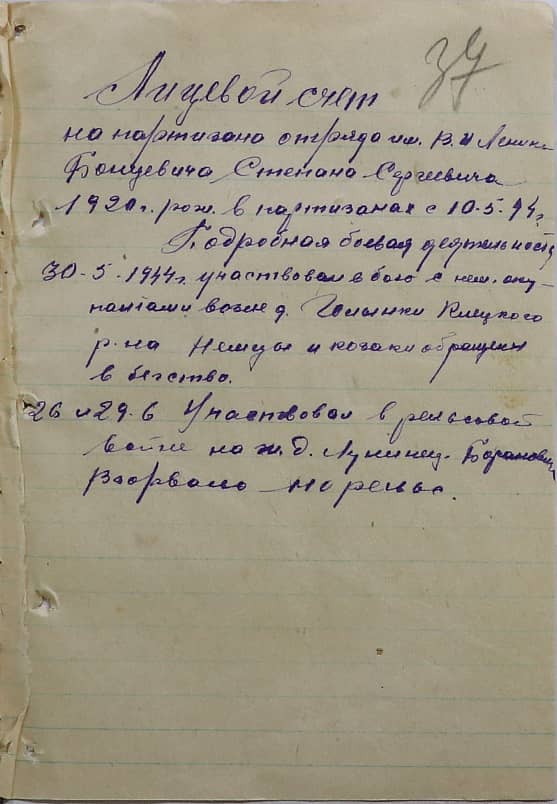 37
Лицевой счет
на партизана отряда им. В. И Ленина
Бонцевича Степана Сергеевича
192 г. рож. в партизанах с 10.5.44г
Подробная боевая деятельность
30-5-1944г. участвовал в бою с нем. оку-
пантами возле д. Голынки Клецкого
р-на Немцы и козаки обращены
в бегство.
26 и 29.6 Участвовал в рельсовой
войне на ж. д. Лунинец-Баранович
Взорвано рельс.